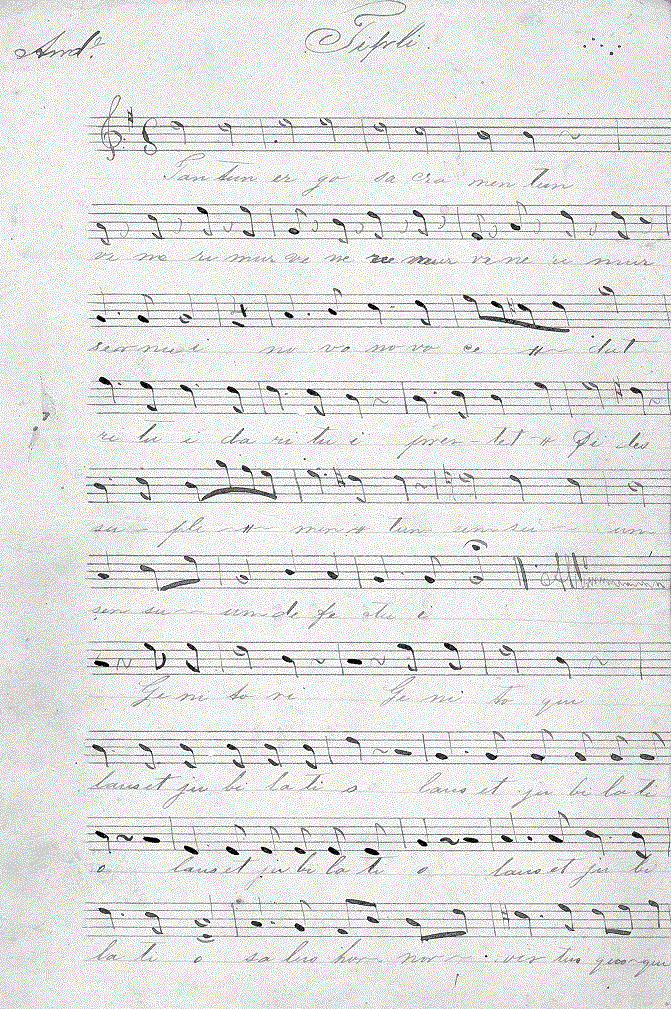 And.º Tipli.
Tan tun er go sa cra men tun
ve ne re mur ve ne re mur ve ne re mur
ser nui no vo no vo ce dat
ri tu i da ri tu i pres tet fi des
su ple men tun sen su um
sen su un de fe tu i
Ge ni to ri Ge ni to que
laus et ju bi la ti o laus et ju bi la ti
o laus et ju bi la ti o laus et ju bi
la ti o sa lus hon nor vir tus quo que